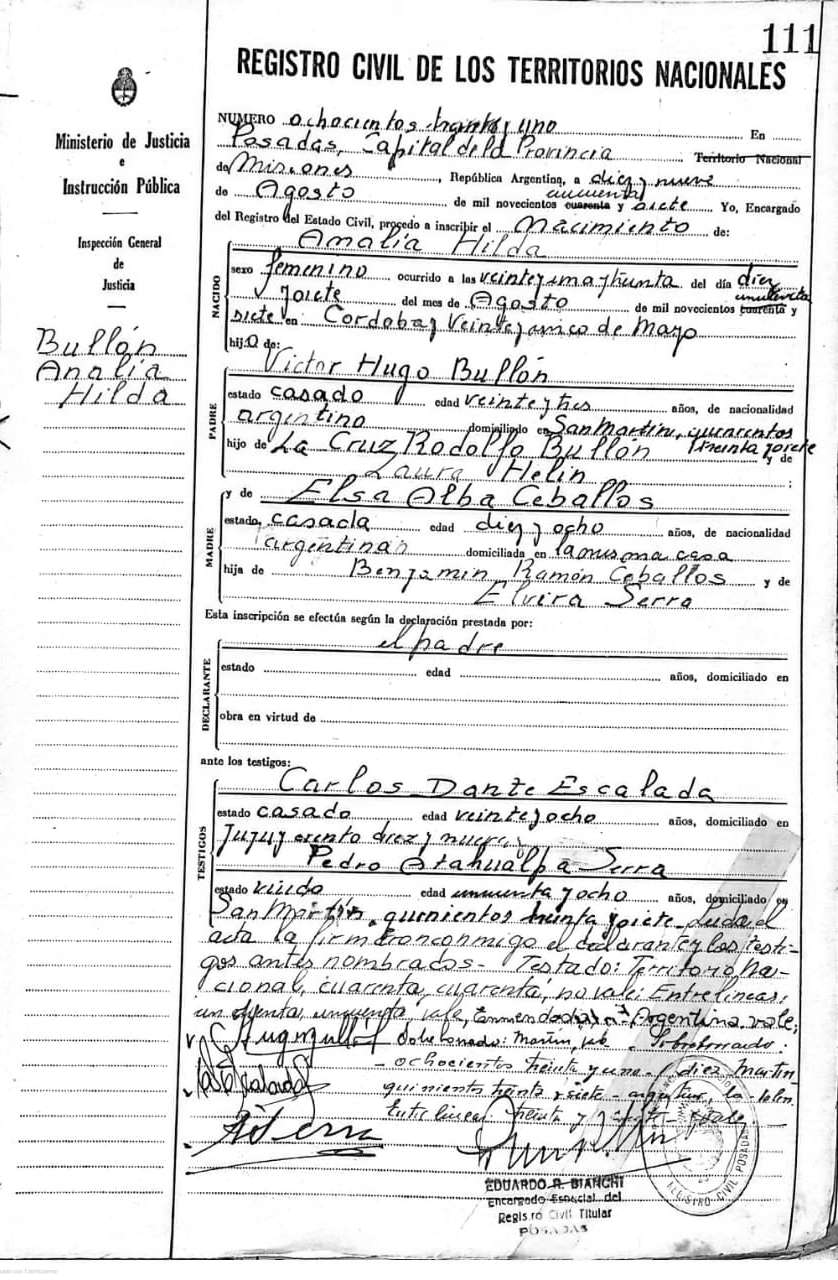 111
REGISTRO CIVIL DE LOS TERRITORIOS NACIONALES
Ministerio de Justicia
e
Instrucción Pública
Inspección General
de
Justicia
Bullón
Analía
Hilda
NUMERO ochocientos treinta y uno En
Posadas, Capital de la Provincia Territorio Nacional
de Misiones, República Argentina, a diez y nueve
cincuenta
de Agosto de mil novecientos cuarenta y siete Yo, Encargado
del Registro del Estado Civil, procedo a inscribir el Nacimiento de:
NACIDO
Analía Hilda
sexo femenino ocurrido a las veinte y una y treinta del día diez
cincuenta
y siete del mes de Agosto de mil novecientos cuarenta y
siete en Cordoba y Veinte y cinco de Mayo
hija de:
PADRE
Victor Hugo Bullón
estado casado edad veinte y tres años, de nacionalidad
argentino domiciliado en San Martín,
treinta y siete
hijo de La Cruz Rodolfo Bullón y de
Laura Helin
MADRE
y de Elsa Alba Ceballos
estado casada edad diez y ocho años, de nacionalidad
argentina domiciliada en la misma casa
hija de Benjamin Ramón Ceballos y de
Elvira Serra
Esta inscripción se efectúa según la declaración prestada por:
DECLARANTE
el padre
estado edad años, domiciliado en
obra en virtud de
ante los testigos:
TESTIGOS
Carlos Dante Escalada
estado casado edad veinte y ocho años, domiciliado en
Jujuy ciento diez y nueve
Pedro Atahualpa Serra
estado viudo edad cincuenta y ocho años, domiciliado en
San Martín quinientos treinta y siete Leída el
acta la firmaron conmigo el declarante y los testi-
gos antes nombrados - Testado: Territorio Na-
cional, cuarenta, cuarenta, no vale: Entrelineas:
cincuenta, cincuenta vale, Enmendado: Argentina vale;
Martín, Sobreborrado:
- ochocientos treinta y uno - diez Martin
quinientos treinta y siete -
Entre lineas: treinta y siete - vale
EDUARDO R. BIANCHI
Encargado Especial del
Registro Civil Titular
POSADAS
REGISTRO CIVIL POSADAS